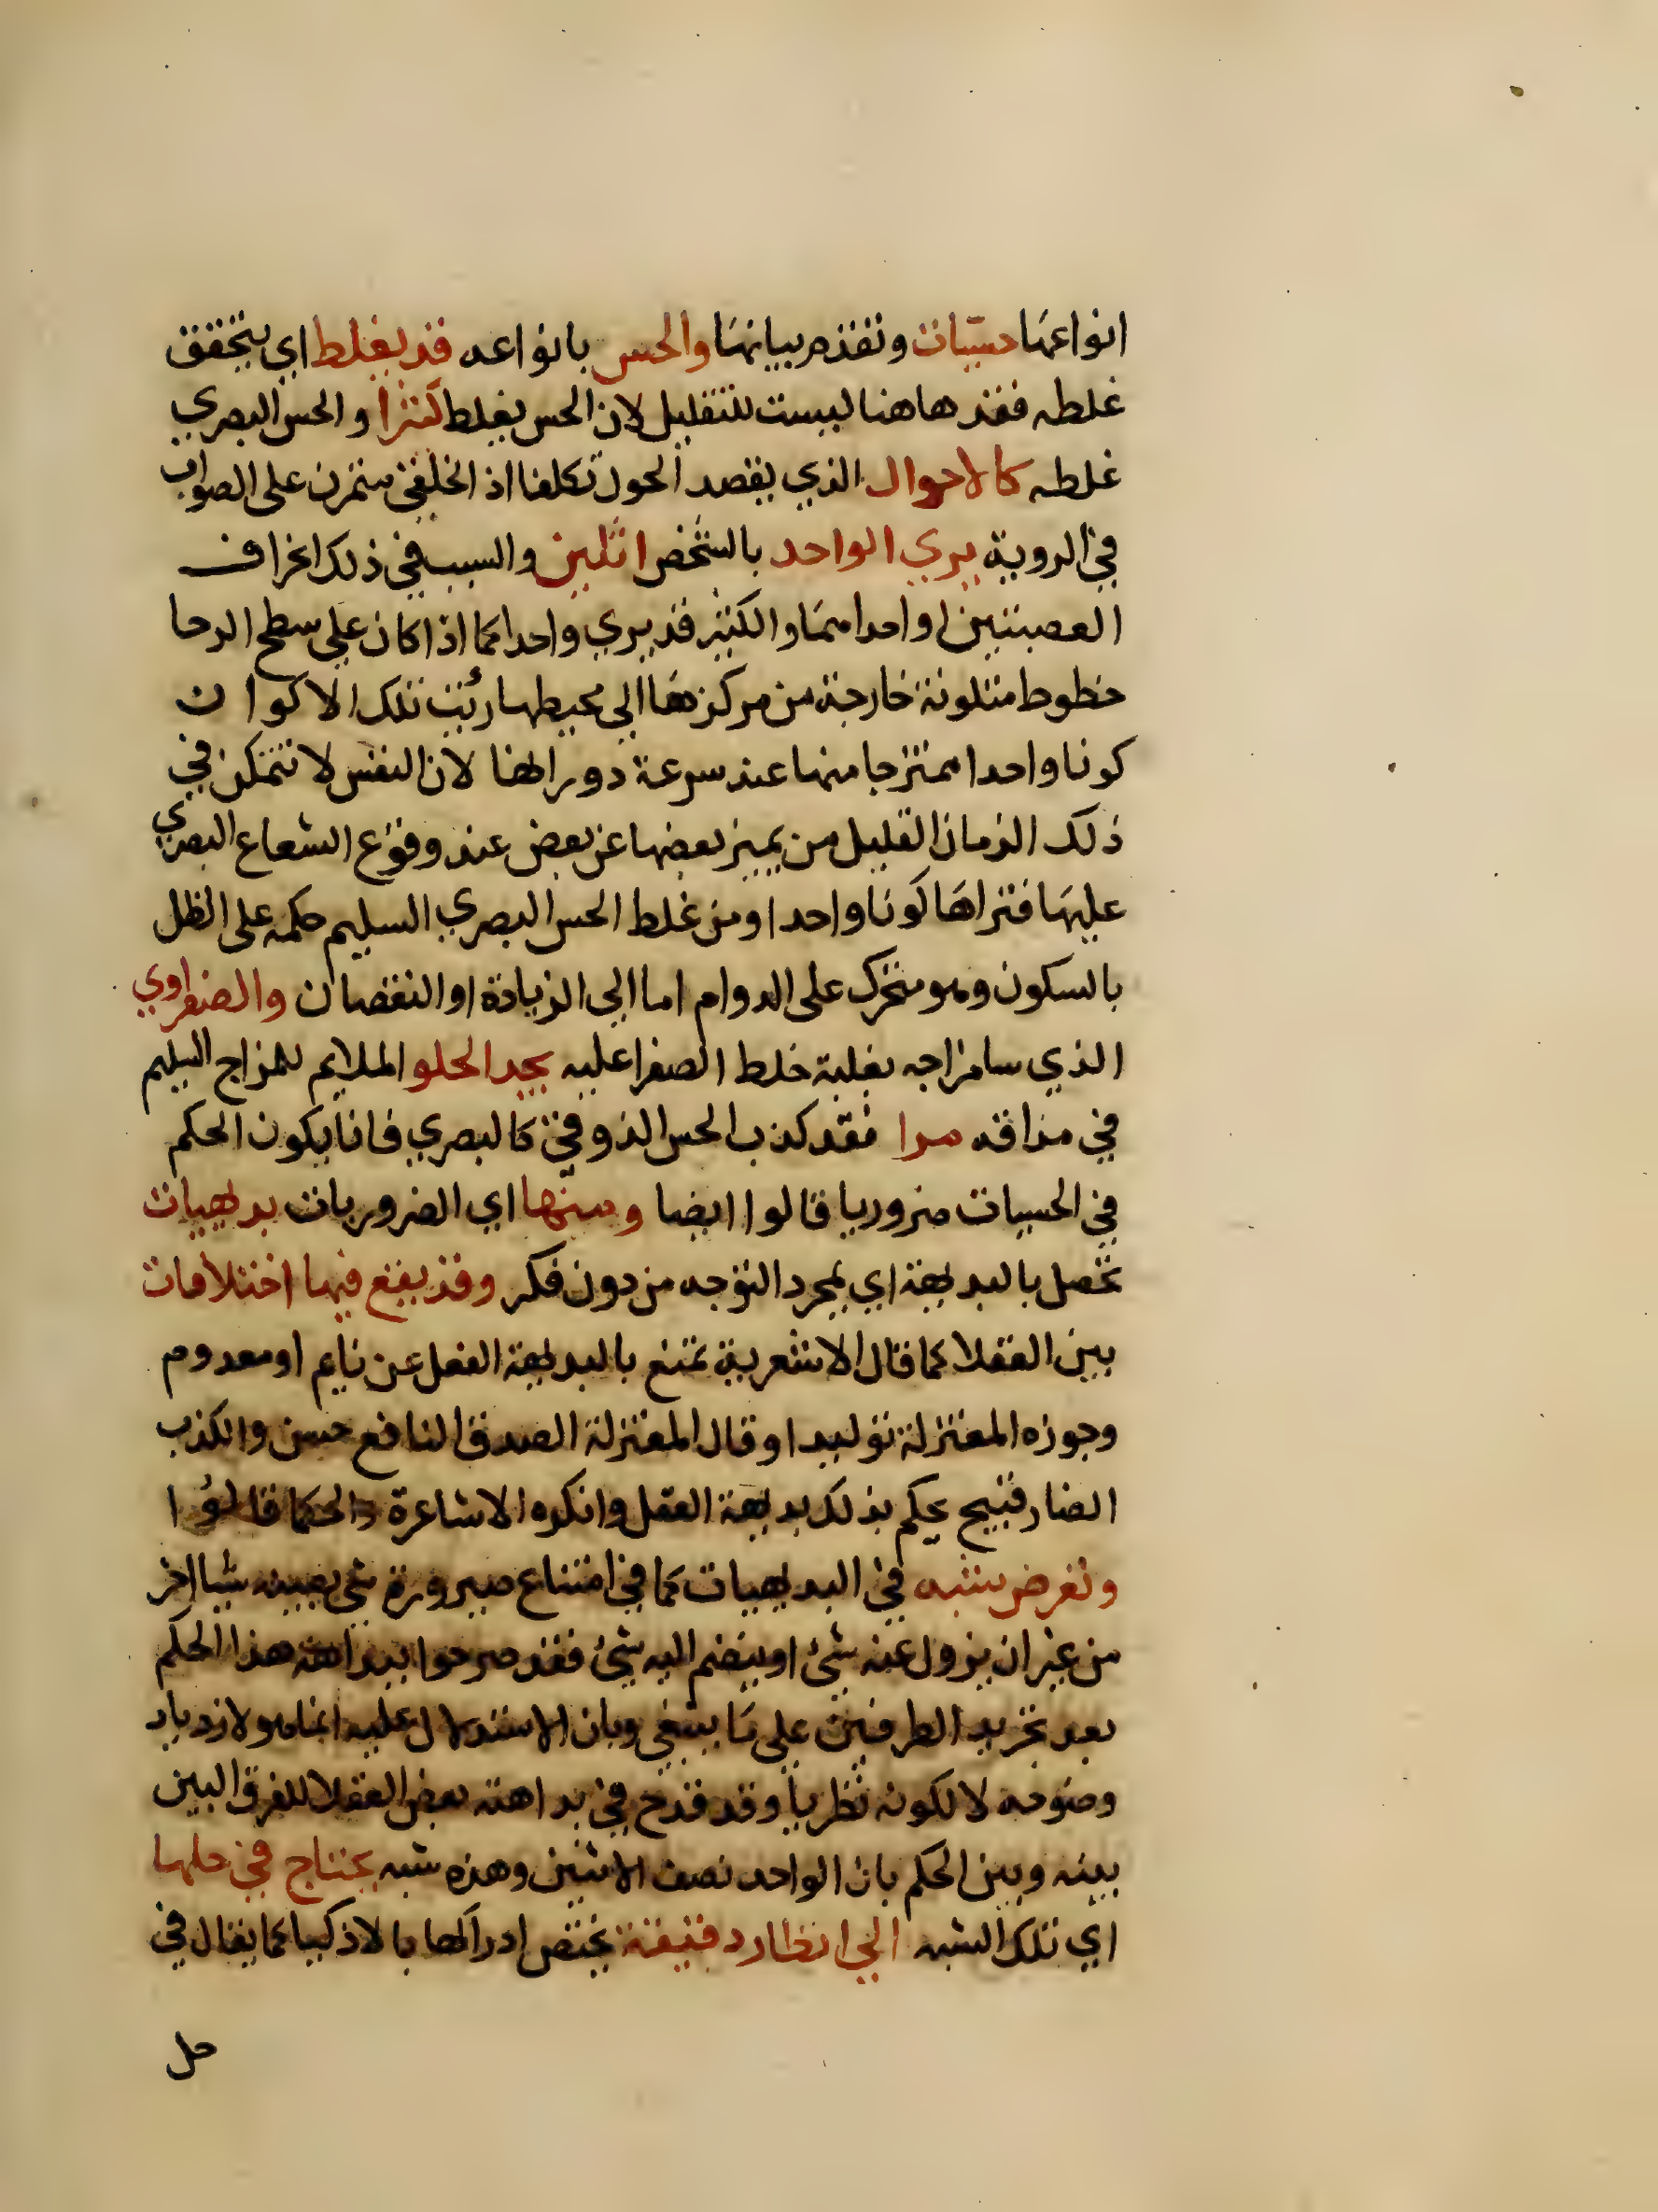 انواعها حسيات وتقدم بيانها والحس بانواعه قد يغلط اي يتحقق
غلطه فقد هاهنا ليست للتقليل لان الحس يغلط كثيرا والحس البصري
غلطه كالاحوال الذي يقصد الحول تكلفا اذ الخلقي متمرن على الصواب
في الروية يري الواحد بالشخص اثنين والسبب في ذلك انحراف
العصبتين او احداهما والكثير قد يري واحدا كما اذا كان علي سطح الرحا
خطوط متلونة خارجة من مركزها الي محيطها رئيت تلك الاكوان
كونا واحدا ممتزجا منها عند سرعة دورانها لان النفس لا تتمكن في
ذلك الزمان القليل من يميز بعضها عن بعض عند وقوع الشعاع البصري
عليها فتراها كونا واحدا ومن غلط الحس البصري السليم حكمه على الظل
بالسكون وهو متحرك على الدوام اما الي الزيادة او النقصان والصفراوي
الذي سا مزاجه بغلبة خلط الصفرا عليه يجد الحلو الملايم للمزاج السليم
في مذاقه مرا فقد كذب الحس الذوقي كالبصري فانا يكون الحكم
في الحسيات ضروريا قالوا ايضا ومنها اي الضروريات بديهيات
تحصل بالبديهة اي بمجرد التوجه من دون فكر وقد يقع فيها اختلافات
بين العقلا كما قال الاشعرية يمتنع بالبديهة الفعل عن نايم او معدوم
وجوزه المعتزلة توليدا وقال المعتزلة الصدق النافع حسن والكذب
الضار قبيح يحكم بذلك بديهة العقل وانكره الاشاعرة والحكما قالوا
وتعرض شبه في البديهيات كما في امتناع صيرورة شي بعينه شيا اخر
من غير ان يزول عنه شئ او ينضم اليه شئ فقد صرحوا ببداهة هذا الحكم
بعد تجريد الطرفين علي ما ينبغي وبان الاستدلال عليه انما هو لازدياد
وضوحه لا لكونه نظريا وقد قدح في بداهته بعض العقلا للفرق البين
بينه وبين الحكم بان الواحد نصف الاثنين وهذه شبه يحتاج في حلها
اي تلك الشبه الي انظار دقيقة يختص ادراكها بالاذكيا كما يقال في
حل